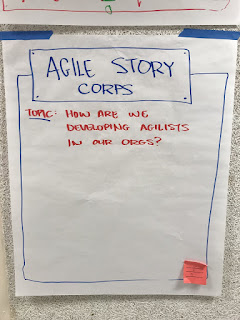 AGILE STORY
CORPS
TOPIC: HOW ARE WE
DEVELOPING AGILISTS
IN OUR ORGS?